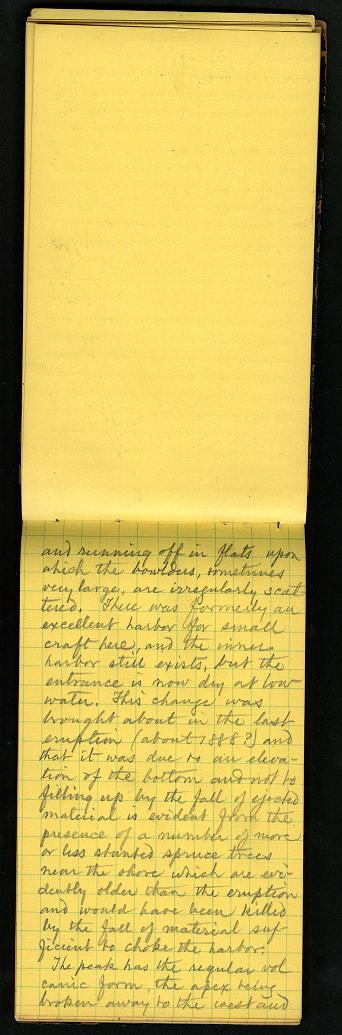 and running off in flats upon
which the bowlders, sometimes
very large, are irregularly scat-
tered. There was formerly an
excellent harbor for small
craft here, and the inner
harbor still exists, but the
entrance is now dry at low
water. This change was
brought about in the last
eruption (about 1888?) and
that it was due to an eleva-
tion of the bottom and not to
filling up by the fall of ejected
material is evident from the
presence of a number of more
or less stunted spruce trees
near the shore which are evi-
dently older than the eruption
and would have been killed
by the fall of material suf-
ficient to choke the harbor.
The peak has the regular vol
canic form, the apex being
broken away to the west and